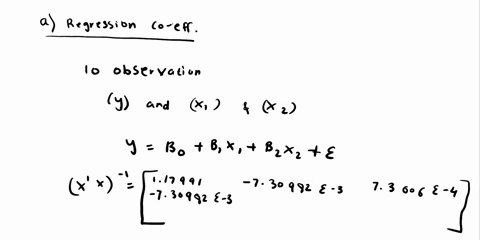 a) Regression co-eff.
10 observation
(y) and (x₁) & (x₂)
y = B₀ + B₁x₁ + B₂x₂ + ε
(x'x)⁻¹ = [1.17991 -7.30982 E-3 7.3006 E-4
-7.30982 E-3 ]